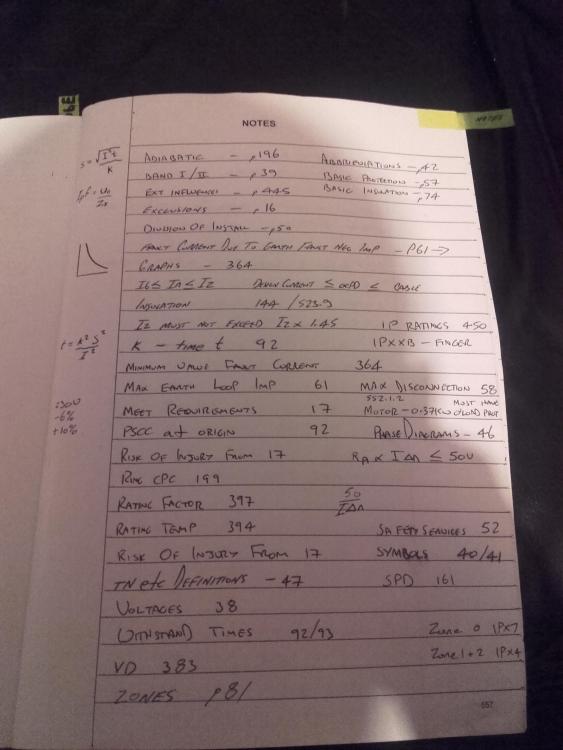 NOTES
NOTES
S = √I²t / K
ADIABATIC - p196 ABBREVIATIONS - p42
BAND I / II - p39 BASIC PROTECTION - p57
Ipf = Uo / Zs
EXT INFLUENCES - p445 BASIC INSULATION - p74
EXCLUSIONS - p16
DIVISION OF INSTALL - p50
FAULT CURRENT DUE TO EARTH FAULT NEG IMP - P61 →
GRAPHS - 364
Ib ≤ In ≤ Iz DESIGN CURRENT ≤ OCPD ≤ CABLE
INSULATION 144 / 523.9
I2 MUST NOT EXCEED Iz x 1.45 IP RATINGS 450
t = K² S² / I²
K - time t 92 IPXXB - FINGER
MINIMUM VALUE FAULT CURRENT 364
MAX EARTH LOOP IMP 61 MAX DISCONNECTION 58
230V
-6%
+10%
552.1.2 MUST HAVE
MEET REQUIREMENTS 17 MOTOR - 0.37KW O/LOAD PROT
PSCC at ORIGIN 92 PHASE DIAGRAMS - 46
RISK OF INJURY FROM 17 RA x IΔn ≤ 50V
RING CPC 199
RATING FACTOR 397 50 / IΔn
RATING TEMP 394 SAFETY SERVICES 52
RISK OF INJURY FROM 17 SYMBOLS 40/41
TN etc DEFINITIONS - 47 SPD 161
VOLTAGES 38
WITHSTAND TIMES 92/93 Zone 0 IPX7
Zone 1 + 2 IPX4
VD 383
ZONES p81
557